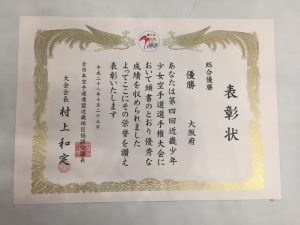 JKF
表彰状
総合優勝
優勝 大阪府
あなたは第四回近畿少年
少女空手道選手権大会に
おいて頭書のとおり優秀な
成績を収められました
よってここにその栄誉を讃え
表彰いたします
平成二十八年十月二十三日
全日本空手道連盟近畿地区協議会
大会会長 村上和定